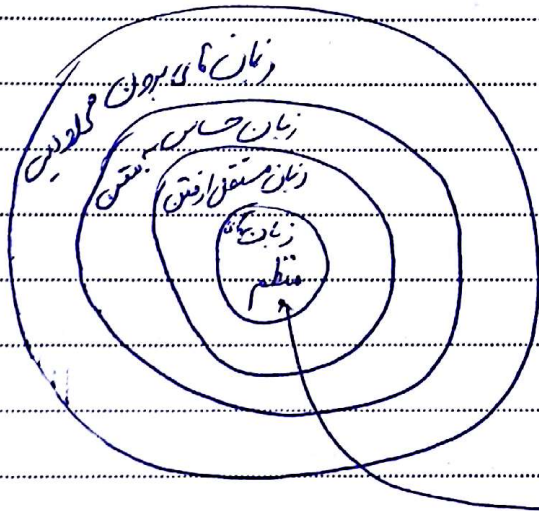 زبان های بدون محدودیت
زبان حساس به متن
زبان مستقل از متن
زبان های
منظم